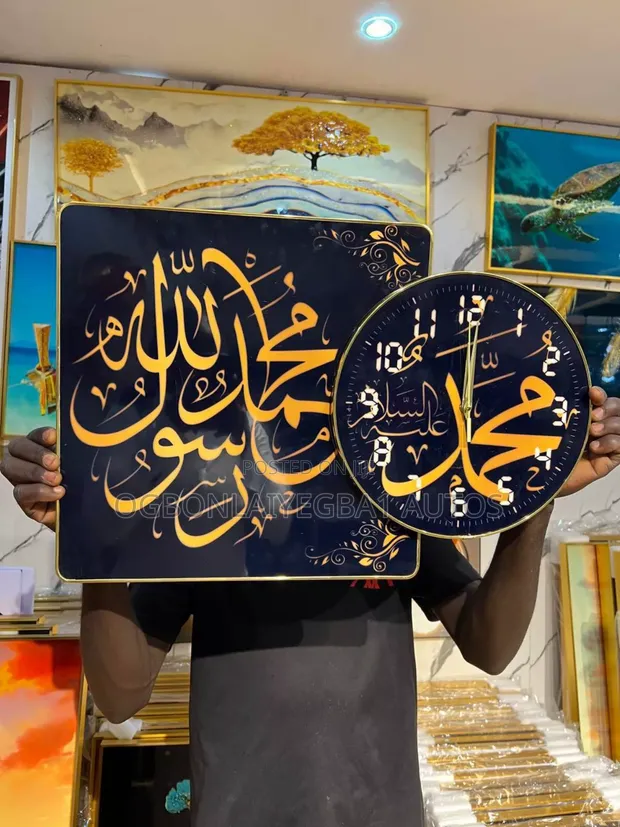 محمد رسول الله
محمد
عليه السلام
12
1
2
3
4
5
6
7
8
9
10
11
POSTED ON
AUTOS